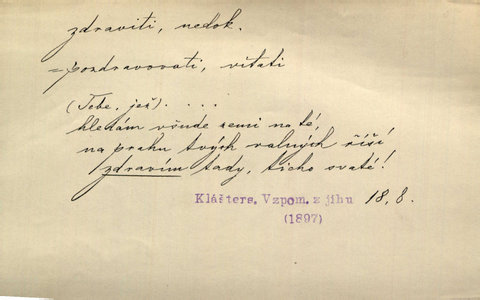 zdraviti, nedok.
= pozdravovati, vítati
(Tebe, jež) . . . .
hledám všude zemi na té,
na prahu tvých valných říší
zdravím tady, ticho svaté!
Klášters, Vzpom. z jihu 18, 8.
(1897)